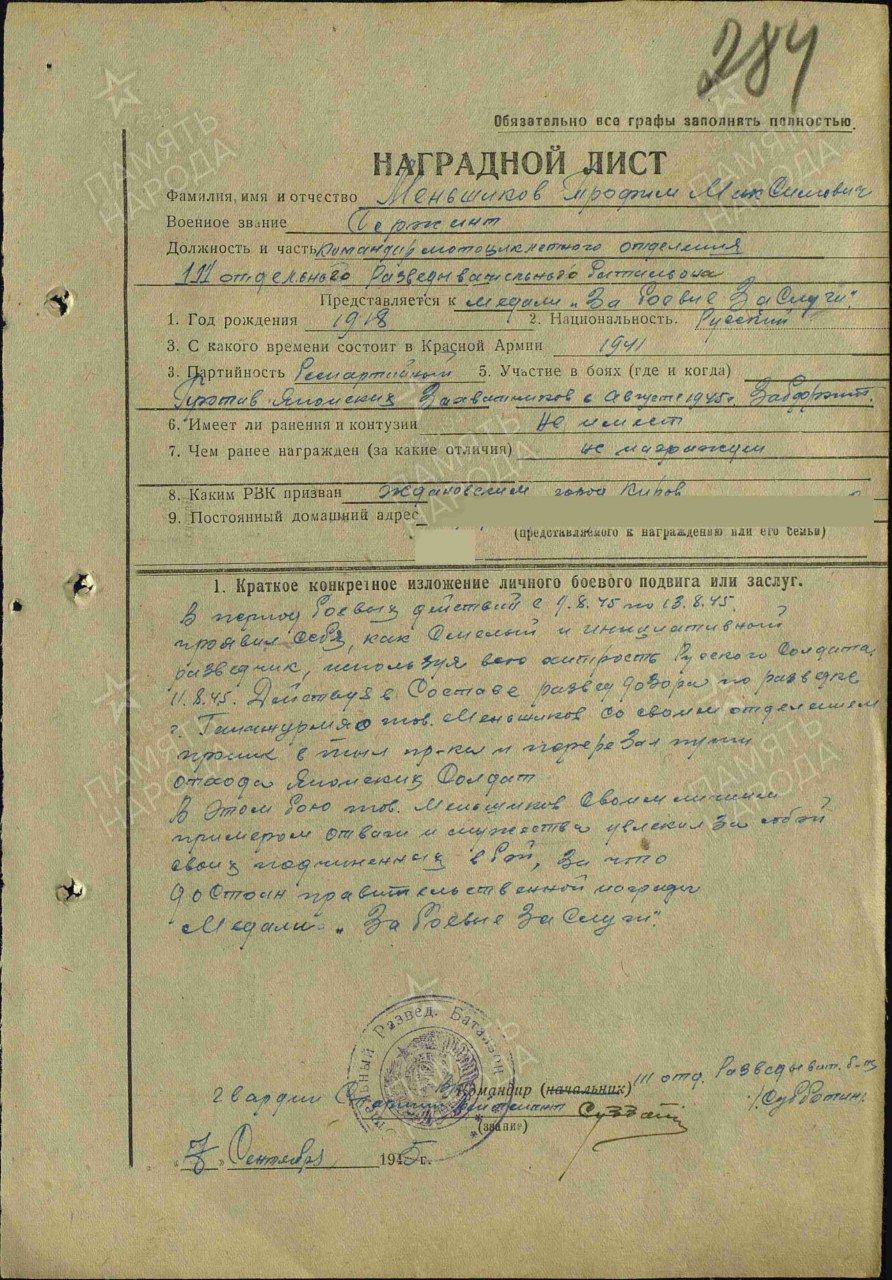 284
Обязательно все графы заполнять полностью.
НАГРАДНОЙ ЛИСТ
Фамилия, имя и отчество Меньшиков Трофим Максимович
Военное звание Сержант
Должность и часть Командир мотоциклетного отделения
111 отдельного Разведывательного Батальона
Представляется к медали „За Боевые Заслуги".
1. Год рождения 1918 2. Национальность. Русский
3. С какого времени состоит в Красной Армии 1941
3. Партийность Беспартийный 5. Участие в боях (где и когда)
Против Японских Захватчиков в Августе 1945г. Забфронт.
6. Имеет ли ранения и контузии не имеет
7. Чем ранее награжден (за какие отличия) не награжден
8. Каким РВК призван Ждановским город Киров
9. Постоянный домашний адрес
(представляемого к награждению или его семьи)
1. Краткое конкретное изложение личного боевого подвига или заслуг.
В период Боевых действий с 9.8.45 по 13.8.45.
проявил себя, как Смелый и инициативный
разведчик, используя всю хитрость Русского Солдата.
11.8.45. Действуя в Составе развед дозора по разведке
г. тов. Меньшиков со своим отделением
в тыл пр-ка и перерезал пути
отхода Японских Солдат
В этом бою тов. Меньшиков Своим личным
примером отваги и мужества увлекал За собой
своих подчиненных в Бой, За что
достоин правительственной награды
Медали „За Боевые Заслуги".
Развед. Батальон
Командир (начальник) 111 отд. Разведыват. б-на
гвардии Старший лейтенант /Субботин/
(звание)
„7" Сентября 1945 г.
ПАМЯТЬ НАРОДА